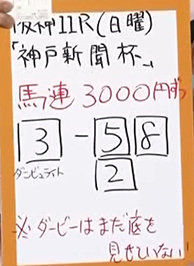 阪神11R(日曜)
「神戸新聞杯」
馬連3000円ずつ
3-58
ダンビュライト
2
※ダービーはまだ底を
見せていない!